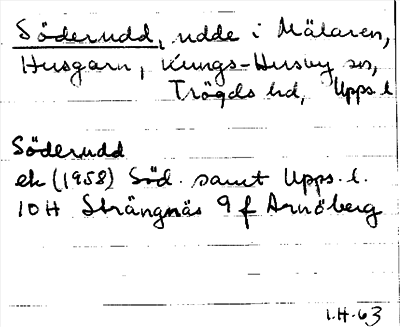 Söderudd, udde i Mälaren,
Husgarn, Kungs-Husby sn,
Trögds hd, Upps. l
Söderudd
ek (1958) Söd. samt Upps. l.
10H Strängnäs 9f Arnöberg
I.H.63